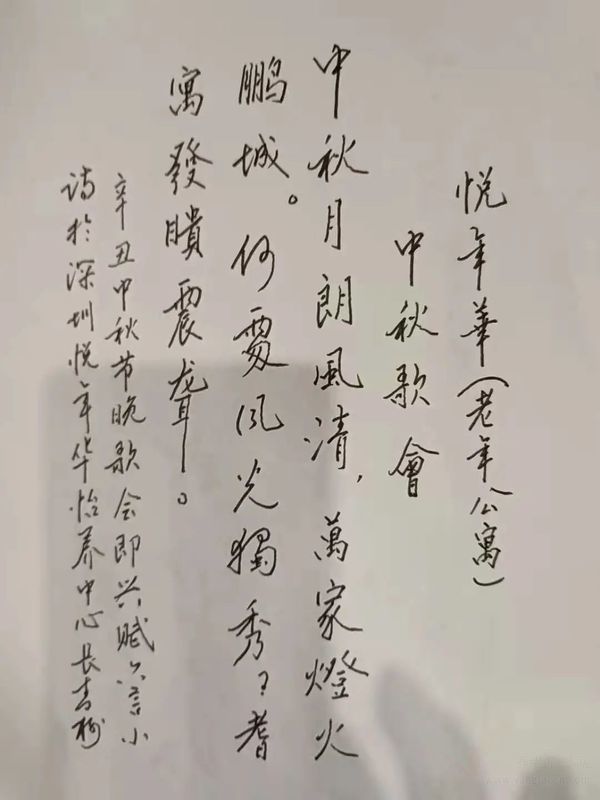 悦年華(老年公寓)
中秋歌會
中秋月朗風清,萬家燈火
鵬城。何處风光獨秀?耆
寓發瞶震聋。
辛丑中秋节晚歌会即兴赋六言小
诗於深圳悦年华怡养中心長青树